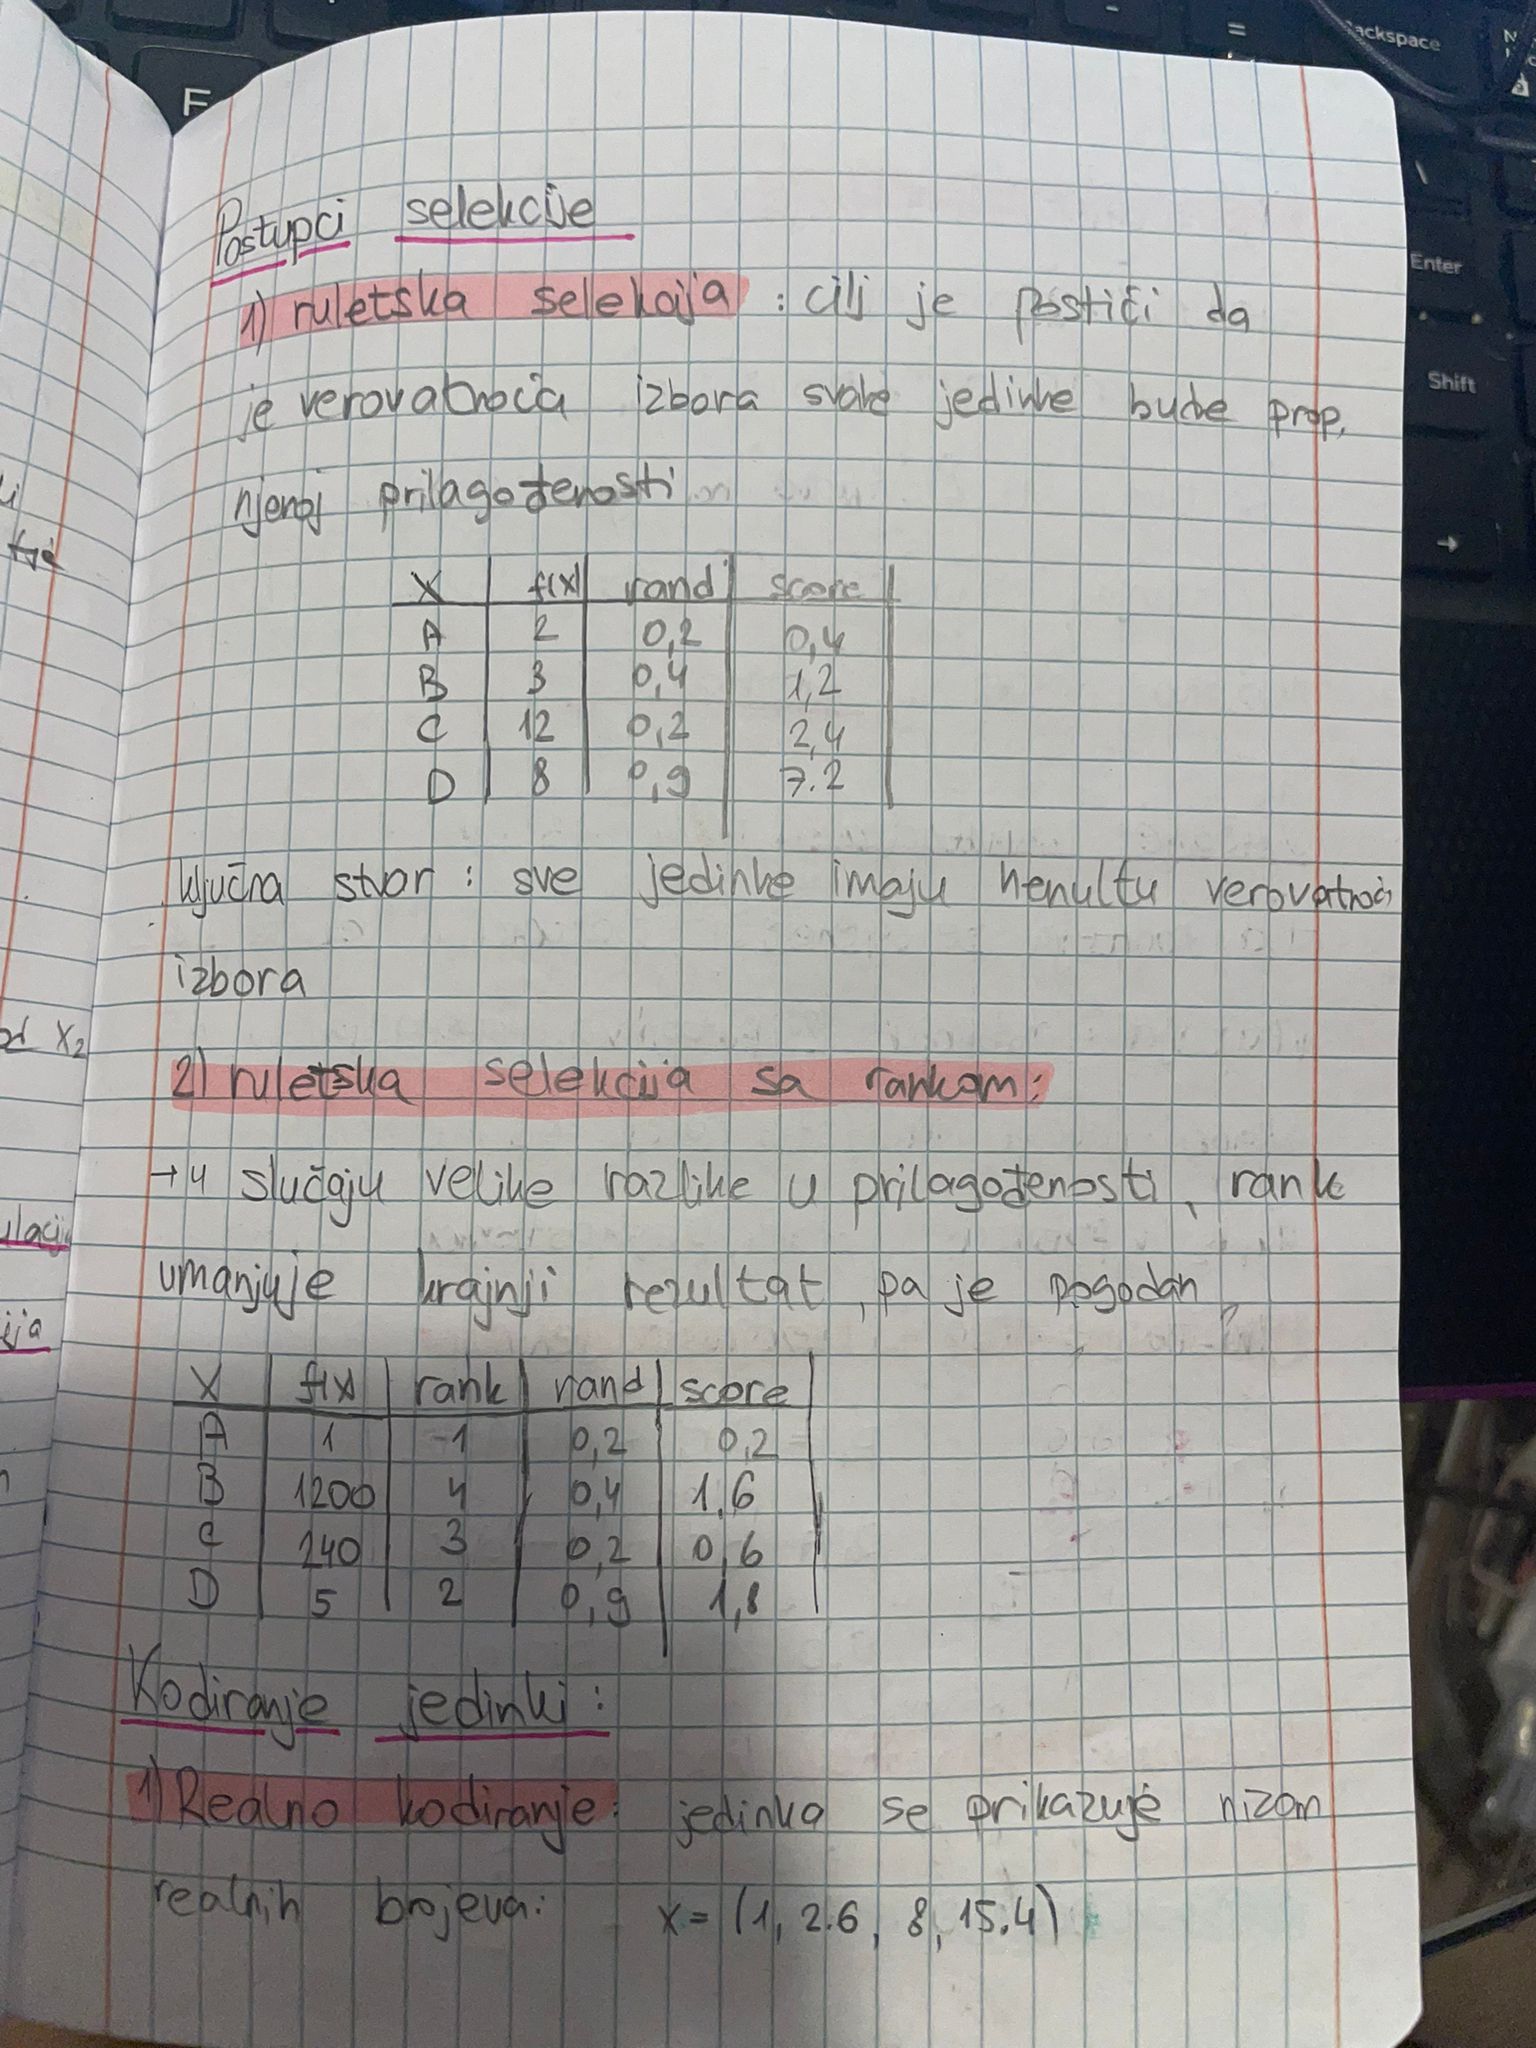 Postupci selekcije
1) ruletska selekcija : cilj je postići da
je verovatnoća izbora svake jedinke bude prop.
njenoj prilagođenosti
X f(x) rand score
A 2 0,2 0,4
B 3 0,4 1,2
C 12 0,2 2,4
D 8 0,9 7.2
ključna stvar : sve jedinke imaju nenultu verovatnoć
izbora
2) ruletska selekcija sa rankom:
→ u slučaju velike razlike u prilagođenosti, rank
umanjuje krajnji rezultat, pa je pogodan
X f(x) rank rand score
A 1 1 0,2 0,2
B 1200 4 0,4 1,6
C 240 3 0,2 0,6
D 5 2 0,9 1,8
Kodiranje jedinki:
1) Realno kodiranje: jedinka se prikazuje nizom
realnih brojeva: x = (1, 2.6, 8, 15.4)
od X2
Backspace
Enter
Shift
→
F
=